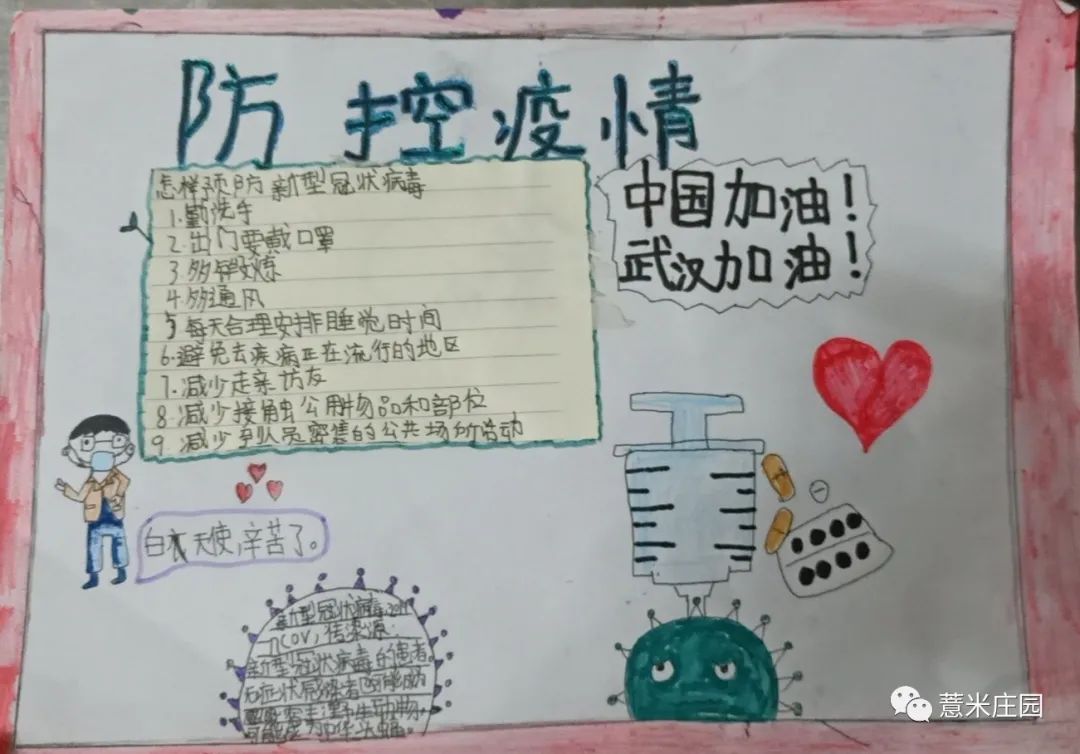 防控疫情
怎样预防新型冠状病毒
1.勤洗手
2.出门要戴口罩
3.多锻炼
4.多通风
5.每天合理安排睡觉时间
6.避免去疾病正在流行的地区
7.减少走亲访友
8.减少接触公用物品和部位
9.减少到人员密集的公共场所活动
中国加油！
武汉加油！
白衣天使,辛苦了。
新型冠状病毒
nCOV,传染源:
新型冠状病毒的患者。
无症状感染者
薏米庄园